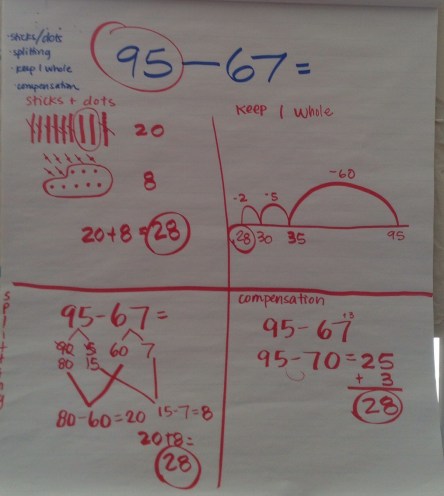 ·sticks/dots
·splitting
·keep 1 whole
·compensation
95-67=
sticks + dots
20
8
20+8=28
Keep 1 whole
-2 -5 -60
28 30 35 95
splitting
95-67=
90 5 60 7
80 15
80-60=20 15-7=8
20+8=
28
compensation
+3
95-67
95-70=25
+ 3
28